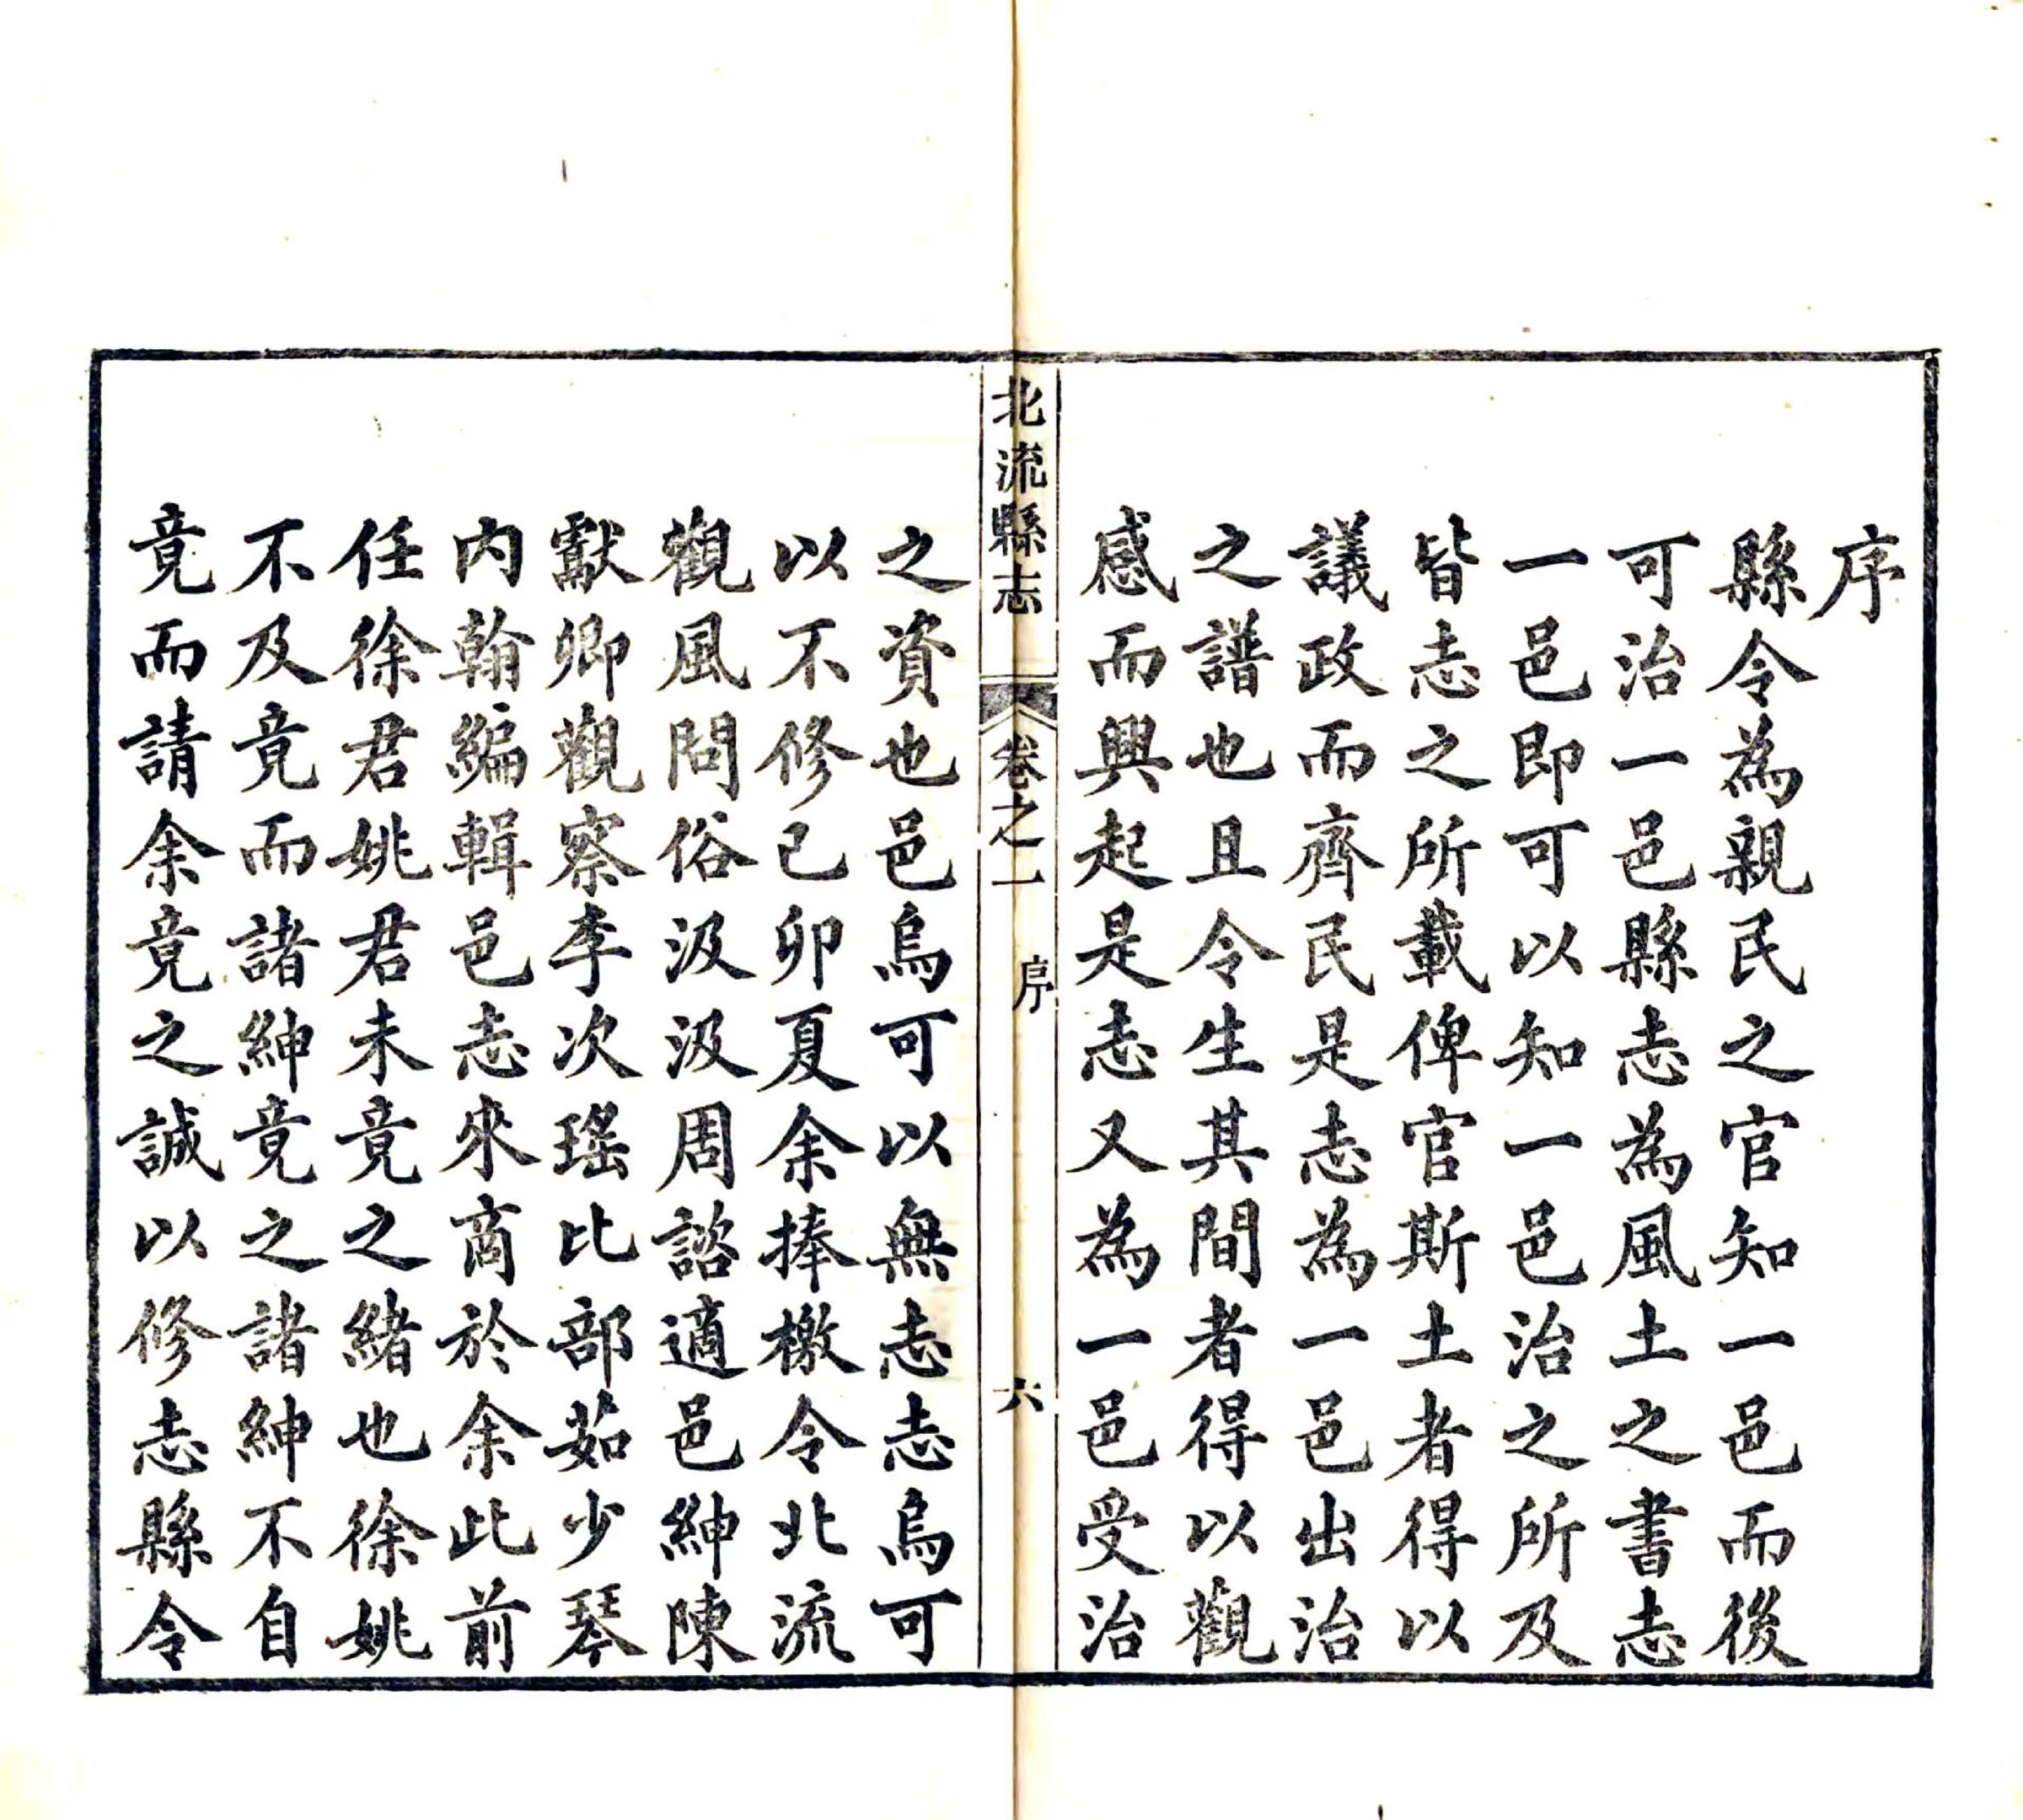 序
縣令為親民之官知一邑而後
可治一邑縣志為風土之書志
一邑即可以知一邑治之所及
皆志之所載俾官斯土者得以
議政而齊民是志為一邑出治
之譜也且令生其間者得以觀
感而興起是志又為一邑受治
北流縣志 卷之一 序 六
之資也邑烏可以無志志烏可
以不修己卯夏余捧檄令北流
觀風問俗汲汲周諮適邑紳陳
獻卿觀察李次瑤比部茹少琴
內翰編輯邑志來商於余此前
任徐君姚君未竟之緒也徐姚
不及竟而諸紳竟之諸紳不自
竟而請余竟之誠以修志縣令